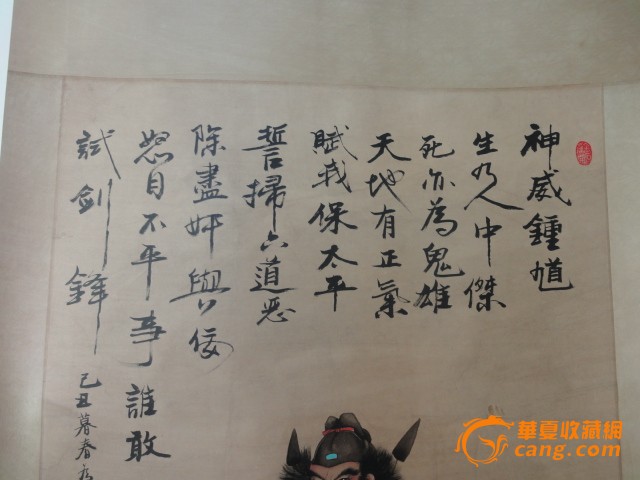 神威鍾馗
生乃人中傑
死亦為鬼雄
天地有正氣
賦我保太平
誓掃六道惡
除盡奸與佞
怒目不平事誰敢
試劍鋒
己丑暮春
華夏收藏網
cang.com